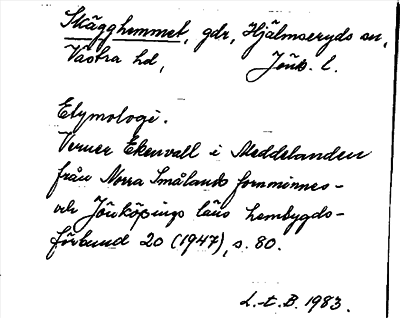 Skägghemmet, gdr, Hjälmseryds sn,
Västra hd, Jönk. l.
Etymologi.
Verner Ekenvall i Meddelanden
från Norra Smålands fornminnes-
och Jönköpings läns hembygds-
förbund 20 (1947), s. 80.
L.-t. B. 1983.